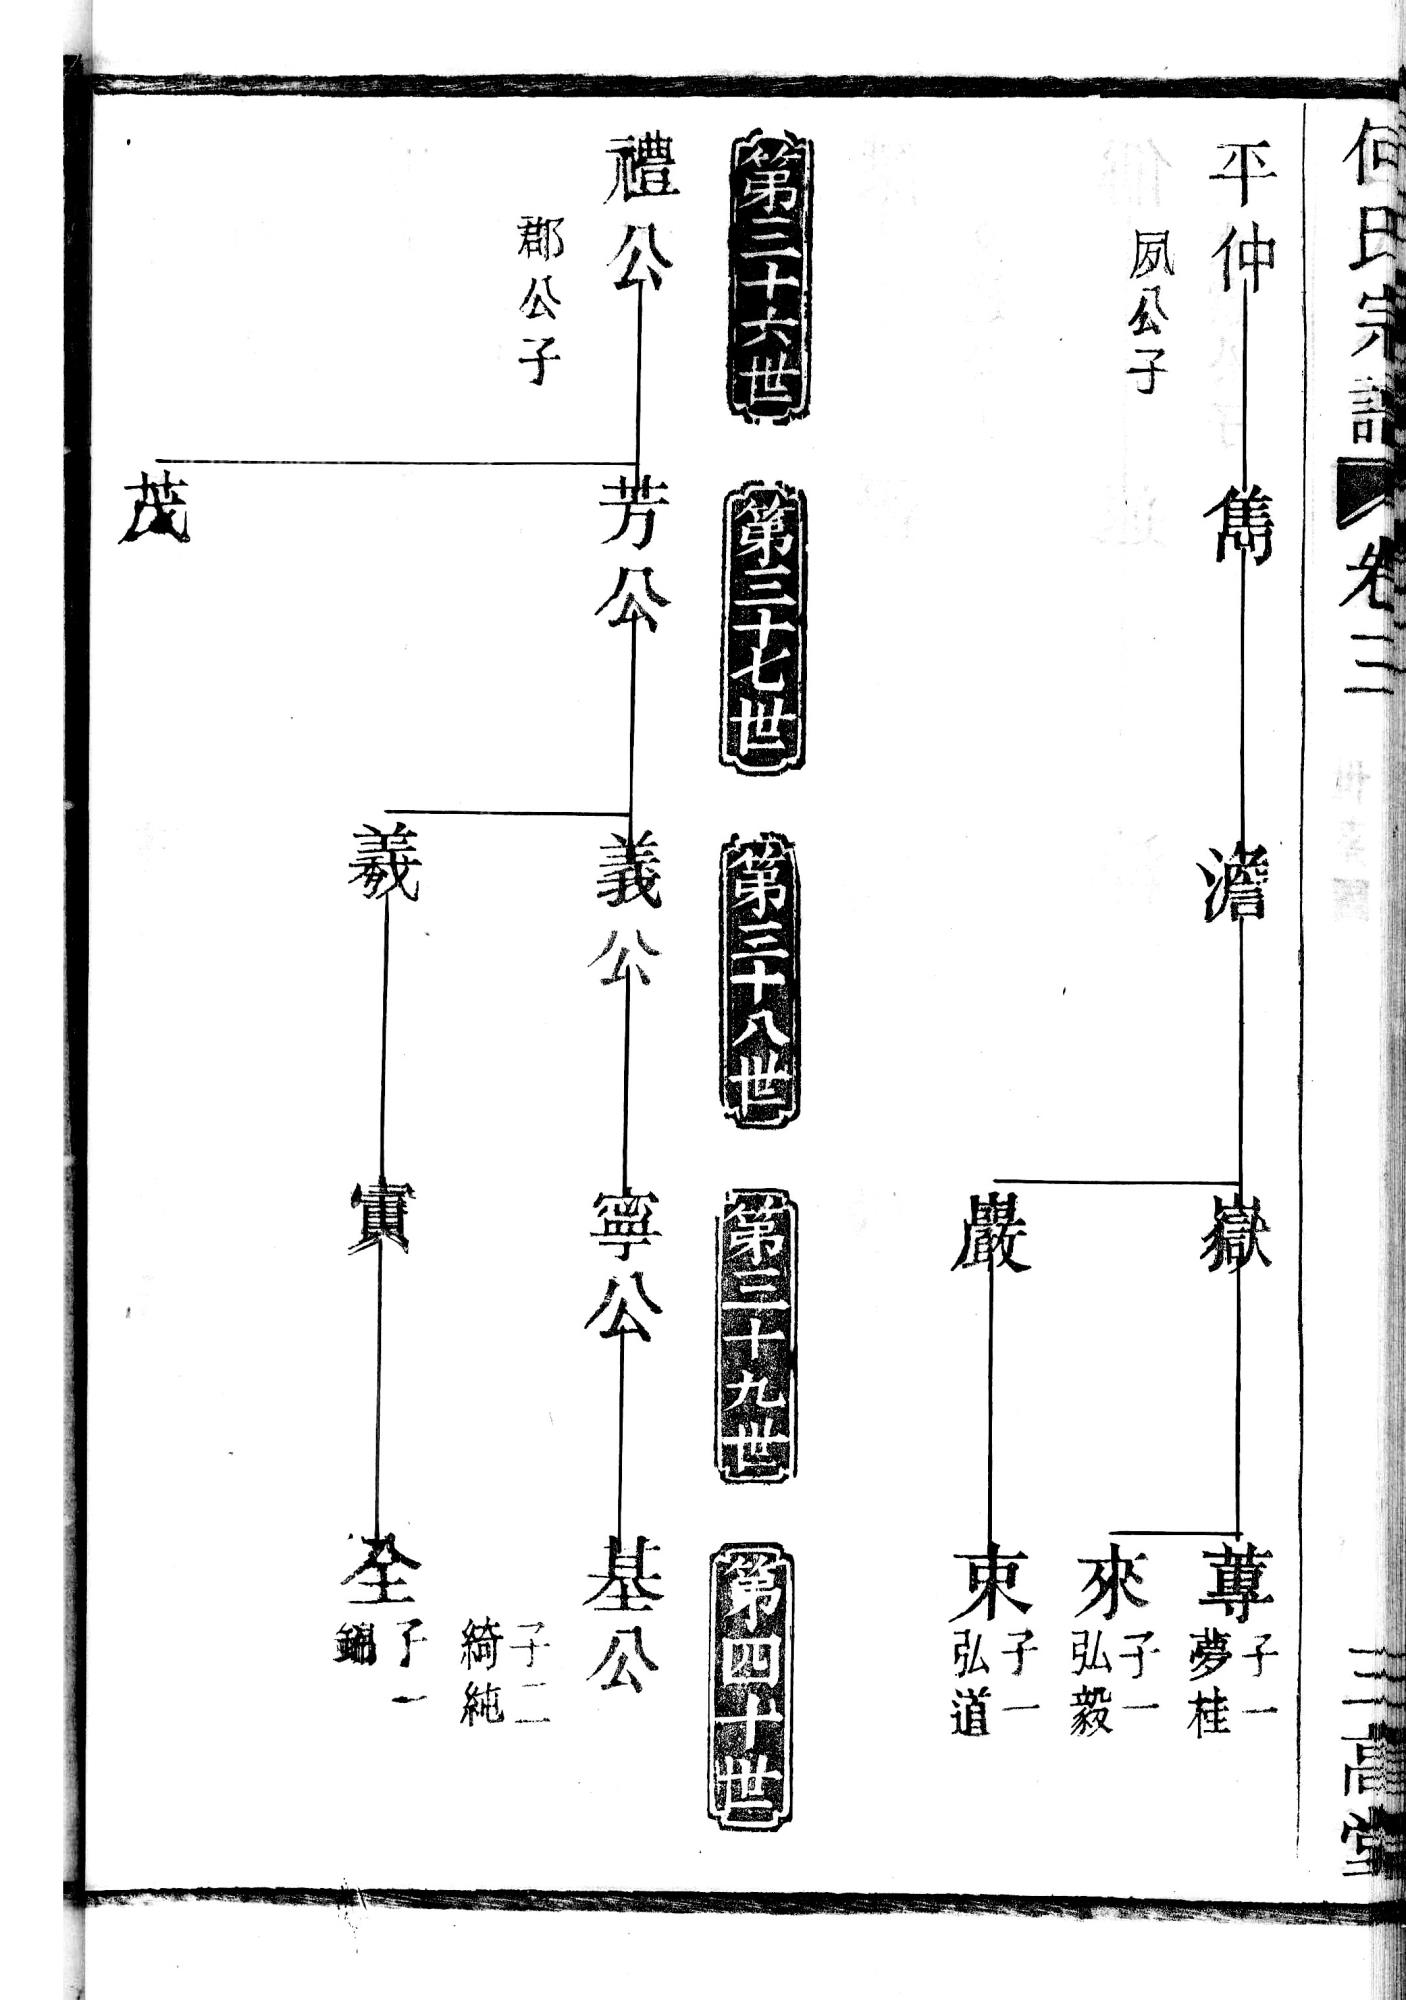 氏宗譜 卷三 三高堂
平仲
夙公子
雋
澹
嶽
蓴
子一
夢桂
來
子一
弘毅
嚴
束
子一
弘道
第三十六世
第三十七世
第三十八世
第三十九世
第四十世
禮公
郡公子
芳公
義公
寧公
基公
子二
綺純
羲
寅
全
子一
錦
茂